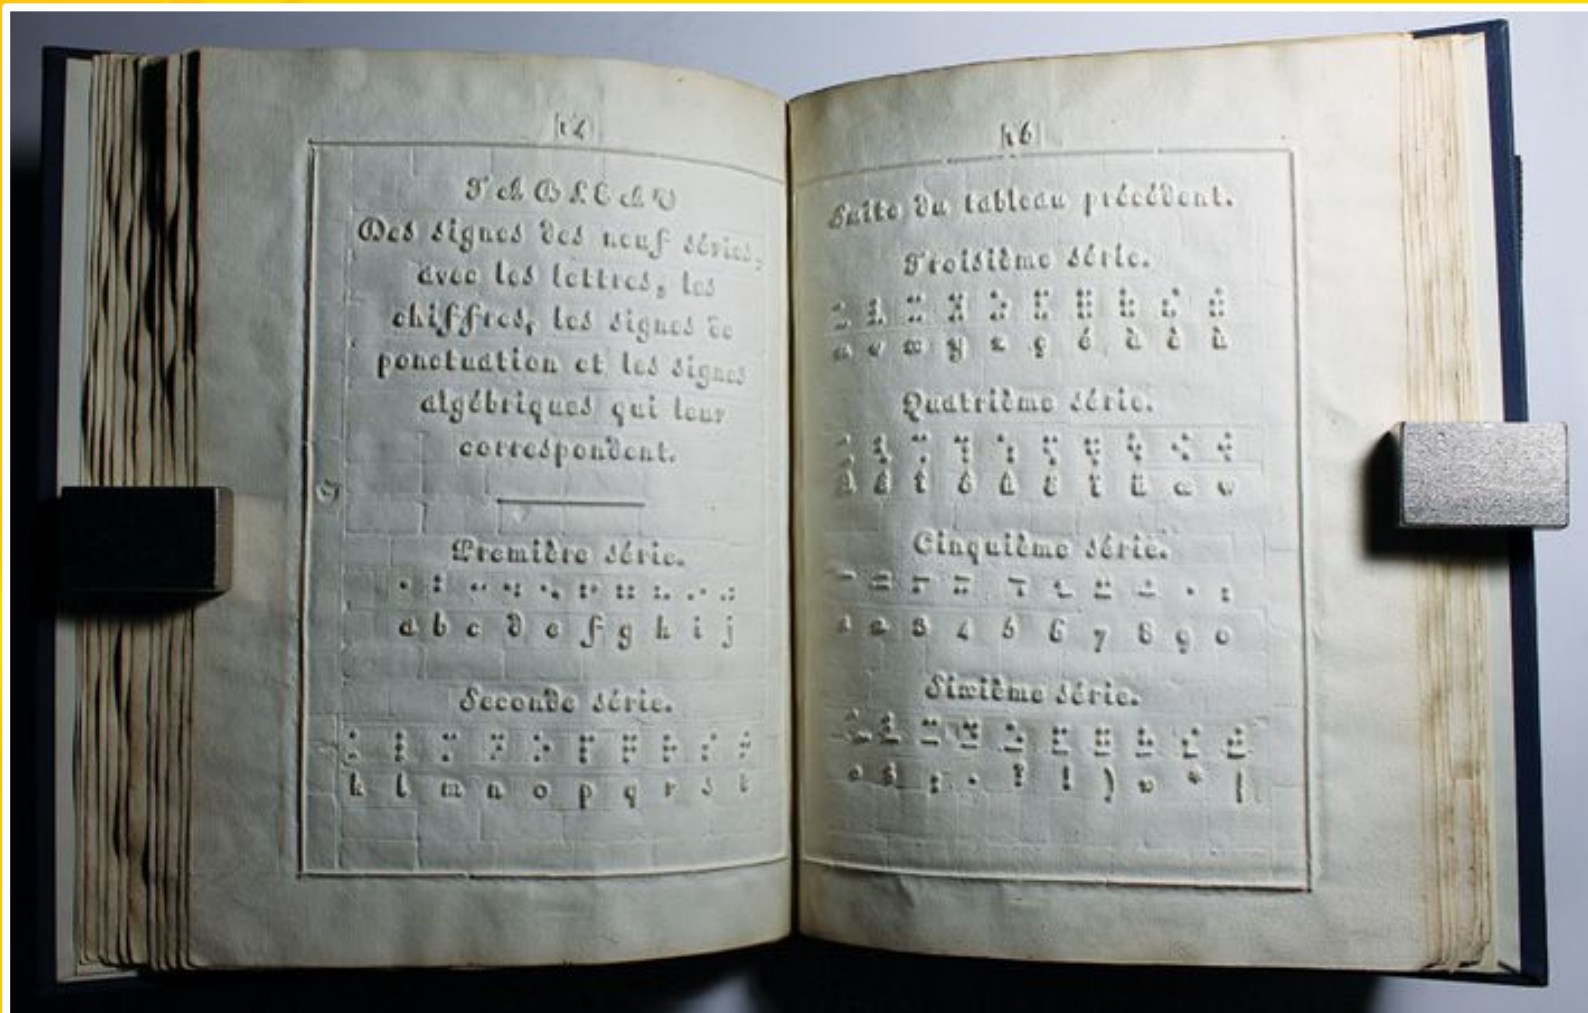 14
TABLEAU
Des signes des neuf séries,
avec les lettres, les
chiffres, les signes de
ponctuation et les signes
algébriques qui leur
correspondent.
Première série.
⠁ ⠃ ⠉ ⠙ ⠑ ⠋ ⠛ ⠓ ⠊ ⠚
a b c d e f g h i j
Seconde série.
⠅ ⠇ ⠍ ⠝ ⠕ ⠏ ⠟ ⠗ ⠎ ⠞
k l m n o p q r s t
16
Suite du tableau précédent.
Troisième série.
⠥ ⠧ ⠭ ⠽ ⠵ ⠯ ⠿ ⠷ ⠮ ⠾
u v x y z ç é à è ù
Quatrième série.
⠡ ⠣ ⠩ ⠹ ⠱ ⠫ ⠻ ⠳ ⠪ ⠺
â ê î ô û ë ï ü œ w
Cinquième série.
1 2 3 4 5 6 7 8 9 0
Sixième série.